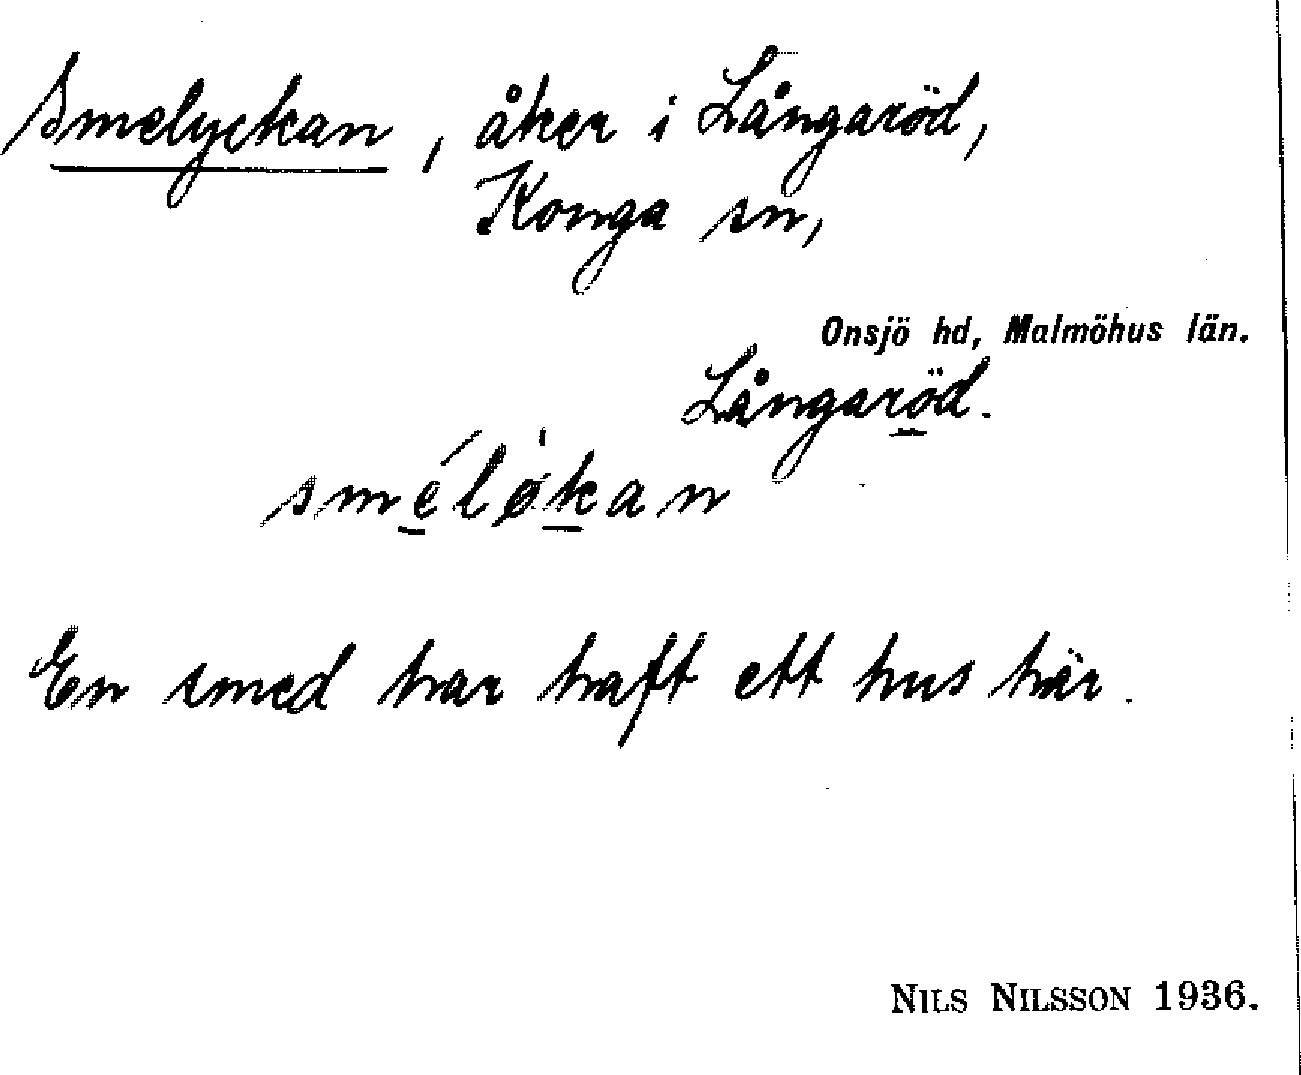 Smelyckan, åker i Långaröd,
Konga sn,
Onsjö hd, Malmöhus län.
Långaröd.
smélø̀kan
En smed har haft ett hus här.
NILS NILSSON 1936.